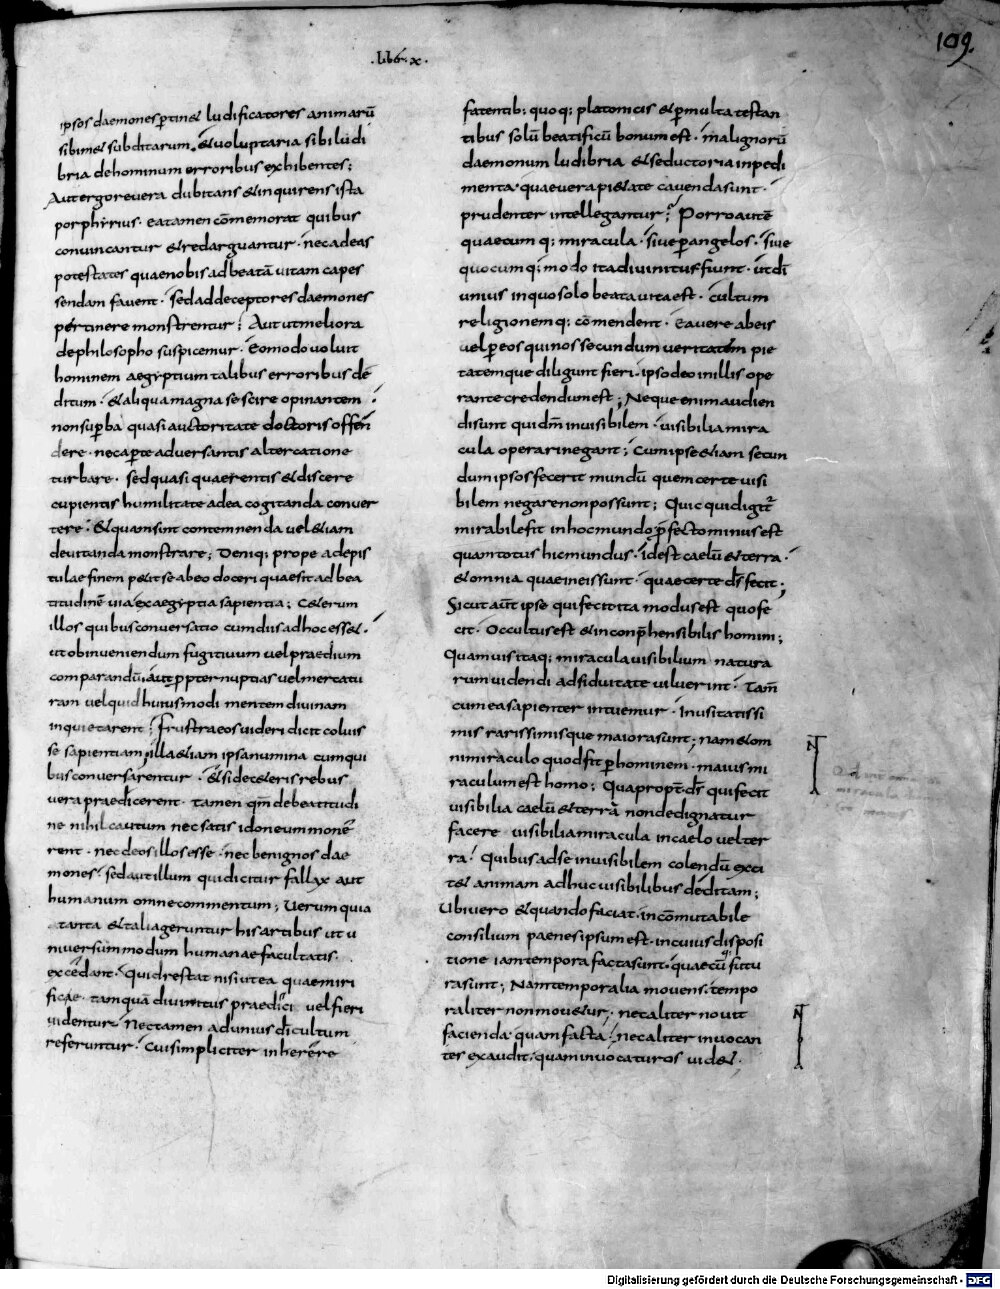 109.
.lib̄er.x.
ipsos daemones ptin& ludificatores animarū
sibim& subditarum. & voluptaria sibi ludi
bria de hominum erroribus exhibentes;
Aut ergo revera dubitans & inquirens ista
porphyrius. ea tamen cōmemorat quibus
convincantur & redarguantur. nec ad eas
potestates quae nobis ad beatā vitam capes
sendam favent. sed ad deceptores daemones
pertinere monstrentur; Aut ut meliora
de philosopho suspicemur. Eo modo voluit
hominem aegyptium talibus erroribus dē
ditum. & aliqua magna se scire opinantem.
non supba quasi auctoritate doctoris offen
dere. nec apte adversantis altercatione
turbare. sed quasi quaerentis & discere
cupientis humilitate ad ea cogitanda conver
tere. & quam sint contemnenda vel &iam
devitanda monstrare; Deniq; prope ad epis
tulae finem p&it se ab eo doceri quae sit ad bea
titudinē via ex aegyptia sapientia; C&erum
illos quibus conversatio cum diis ad hoc ess&.
ut ob inveniendum fugitivum vel praedium
comparandū. aut ppter nuptias vel mercatu
ram vel quid huiusmodi mentem divinam
inqui&arent; Frustra eos videri dicit coluis
se sapientiam; illa &iam ipsa numina cum qui
bus conversarentur. &si de c&eris rebus
vera praedicerent. tamen qm̄ de beatitudi
ne nihil cautum nec satis idoneum monē
rent. nec deos illos esse. nec benignos dae
mones. sed aut illum qui dicitur fallax aut
humanum omne commentum; Verum quia
tanta & talia geruntur his artibus ut u
niversum modum humanae facultatis.
excedant. quid restat nisi ut ea quae miri
ficae tamquā divinitus praedici vel fieri
videntur. nec tamen ad unius dī cultum
referuntur. Cui simpliciter inherēre
fatentib; quoq; platonicis & p multa testan
tibus solū beatificū bonum est. malignorū
daemonum ludibria & seductoria inpedi
menta quae vera pi&ate cavenda sunt.
prudenter intellegantur; Porro autē
quaecumq; miracula. sive p angelos. sive
quocumq; modo ita divinitus fiunt. ut dī
unius in quo solo beata vita est. cultum
religionemq; cōmendent. Ea vere ab eis
vel p eos qui nos secundum veritatem pie
tatemque diligunt fieri. ipso deo in illis ope
rante credendum est; Neque enim audien
di sunt qui dm̄ invisibilem. visibilia mira
cula operari negant; Cum ipse &iam secun
dum ipsos fecerit mundū quem certe visi
bilem negare non possunt; Quicquid igit̄
mirabile fit in hoc mundo pfecto minus est
quam totus hic mundus. id est caelū & terra.
& omnia quae in eis sunt. quae certe ds̄ fecit;
Sicut aūt ipse qui fecit ita modus est quo fe
cit. Occultus est & inconphensibilis homini;
Quamvis itaq; miracula visibilium natura
rum videndi adsiduitate viluerint. Tam̄
cum ea sapienter intuemur. inusitatissi
mis rarissimisque maiora sunt; nam & om
ni miraculo quod fit p hominem. maius mi
raculum est homo; Quapropt ds̄ qui fecit
visibilia caelū & terrā non dedignatur
facere visibilia miracula in caelo vel ter
ra. Quibus ad se invisibilem colendū exci
t& animam adhuc visibilibus deditam;
Ubi vero & quando faciat. incōmutabile
consilium paenes ipsum est. in cuius disposi
tione iam tempora facta sunt. quaecūq; futu
ra sunt; Nam temporalia movens. tempo
raliter non mov&ur; nec aliter novit
facienda quam facta. nec aliter invocan
tes exaudit. quam invocaturos vid&.
Digitalisierung gefördert durch die Deutsche Forschungsgemeinschaft - DFG